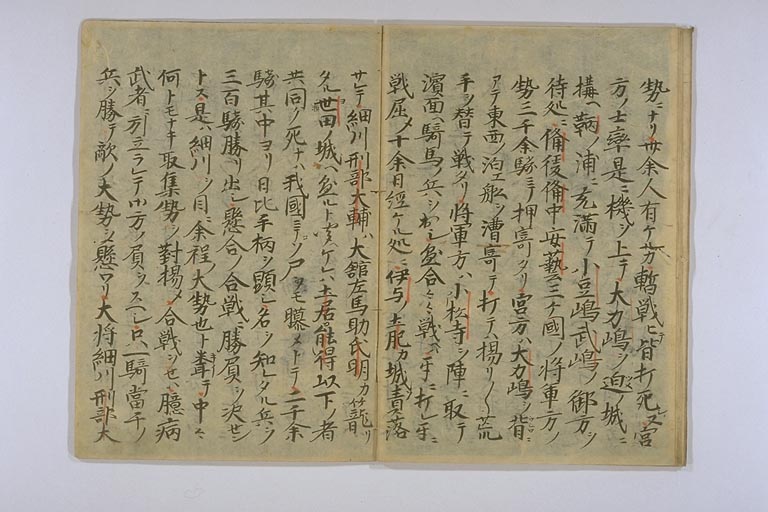 勢ニナリ廿余人有ケルカ暫戦ヒ皆打死ス宮
方ノ士率是ニ機シ上テ大力嶋シ迫城ニ
構ヘ鞆ノ浦ニ充満テ小豆嶋武嶋ノ御方シ
待処ニ備後備中安藝三ケ國ノ将軍方ノ
勢三千余騎ニテ押寄タリ宮方ハ大力嶋シ皆
アテ東西ノ泊エ船シ漕寄テ打テハ揚リ〳〵荒
手シ替テ戦タリ将軍方ハ小松寺シ陣ニ取テ
濱面ヘ騎馬ノ兵シ出シ逆合〳〵戦テ牙ニ打レ牙ニ
戦屈メ十余日経ケル処ニ伊与ノ土肥カ城責落
サレテ細川刑部大輔ハ大舘左馬助氏明カ籠リ
タル世田ノ城ヘ逆ルト聞ケレハ土居得能以下ノ者
共同ノ死ナハ我國ニテノ尸ヲモ曝メトテ二千余
騎其中ヨリ日比手柄シ顕シ名シ知レタル兵シ
三百騎勝リ出シ懸合ノ合戦ニ勝負シ決セン
トス是ハ細川シ目ニ余程ノ大勢也ト聋テ中々
何トモナキ取集勢シ對揚メ合戦シセハ臆病
武者ニ引立ラレテ小方ノ負シスヘシ只一騎當千ノ
兵シ勝テ敵ノ大勢シ懸ワリ大将細川刑部大